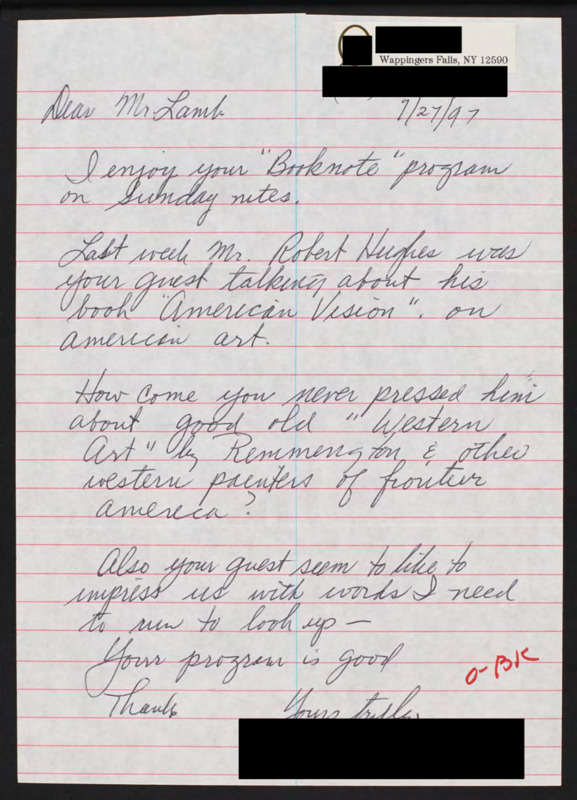 Wappingers Falls, NY 12590
Dear Mr. Lamb
9/27/97
I enjoy your "Booknote" program
on Sunday nites.
Last week Mr. Robert Hughes was
your guest talking about his
book "American Vision". on
american art.
How come you never pressed him
about good old "Western
Art" by Remmengton & other
western painters of frontier
america?
Also your guest seem to like to
impress us with words I need
to run to look up —
Your program is good
O-BK
Thanks
Yours